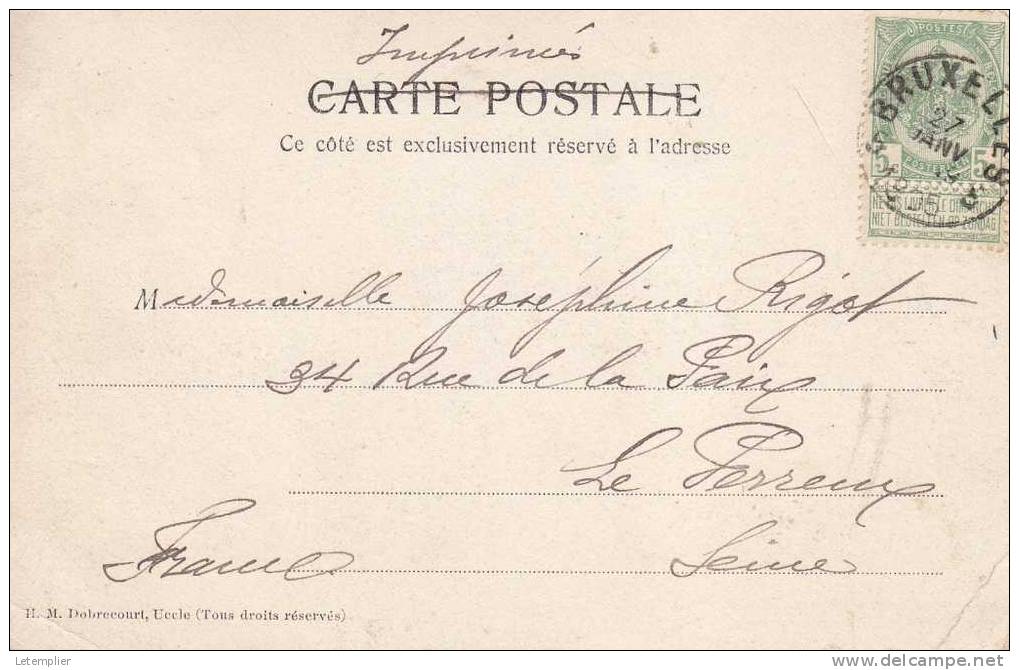 Imprimés
CARTE POSTALE
Ce côté est exclusivement réservé à l'adresse
POSTES
BRUXELLES
27
JANV
1905
5 POSTERIJEN 5
NIET BESTELLEN OP ZONDAG
Mademoiselle Joséphine Rigot
34 Rue de la Paix
Le Perreux
France Seine
H. M. Dobrecourt, Uccle (Tous droits réservés)
Letemplier
www.delcampe.net